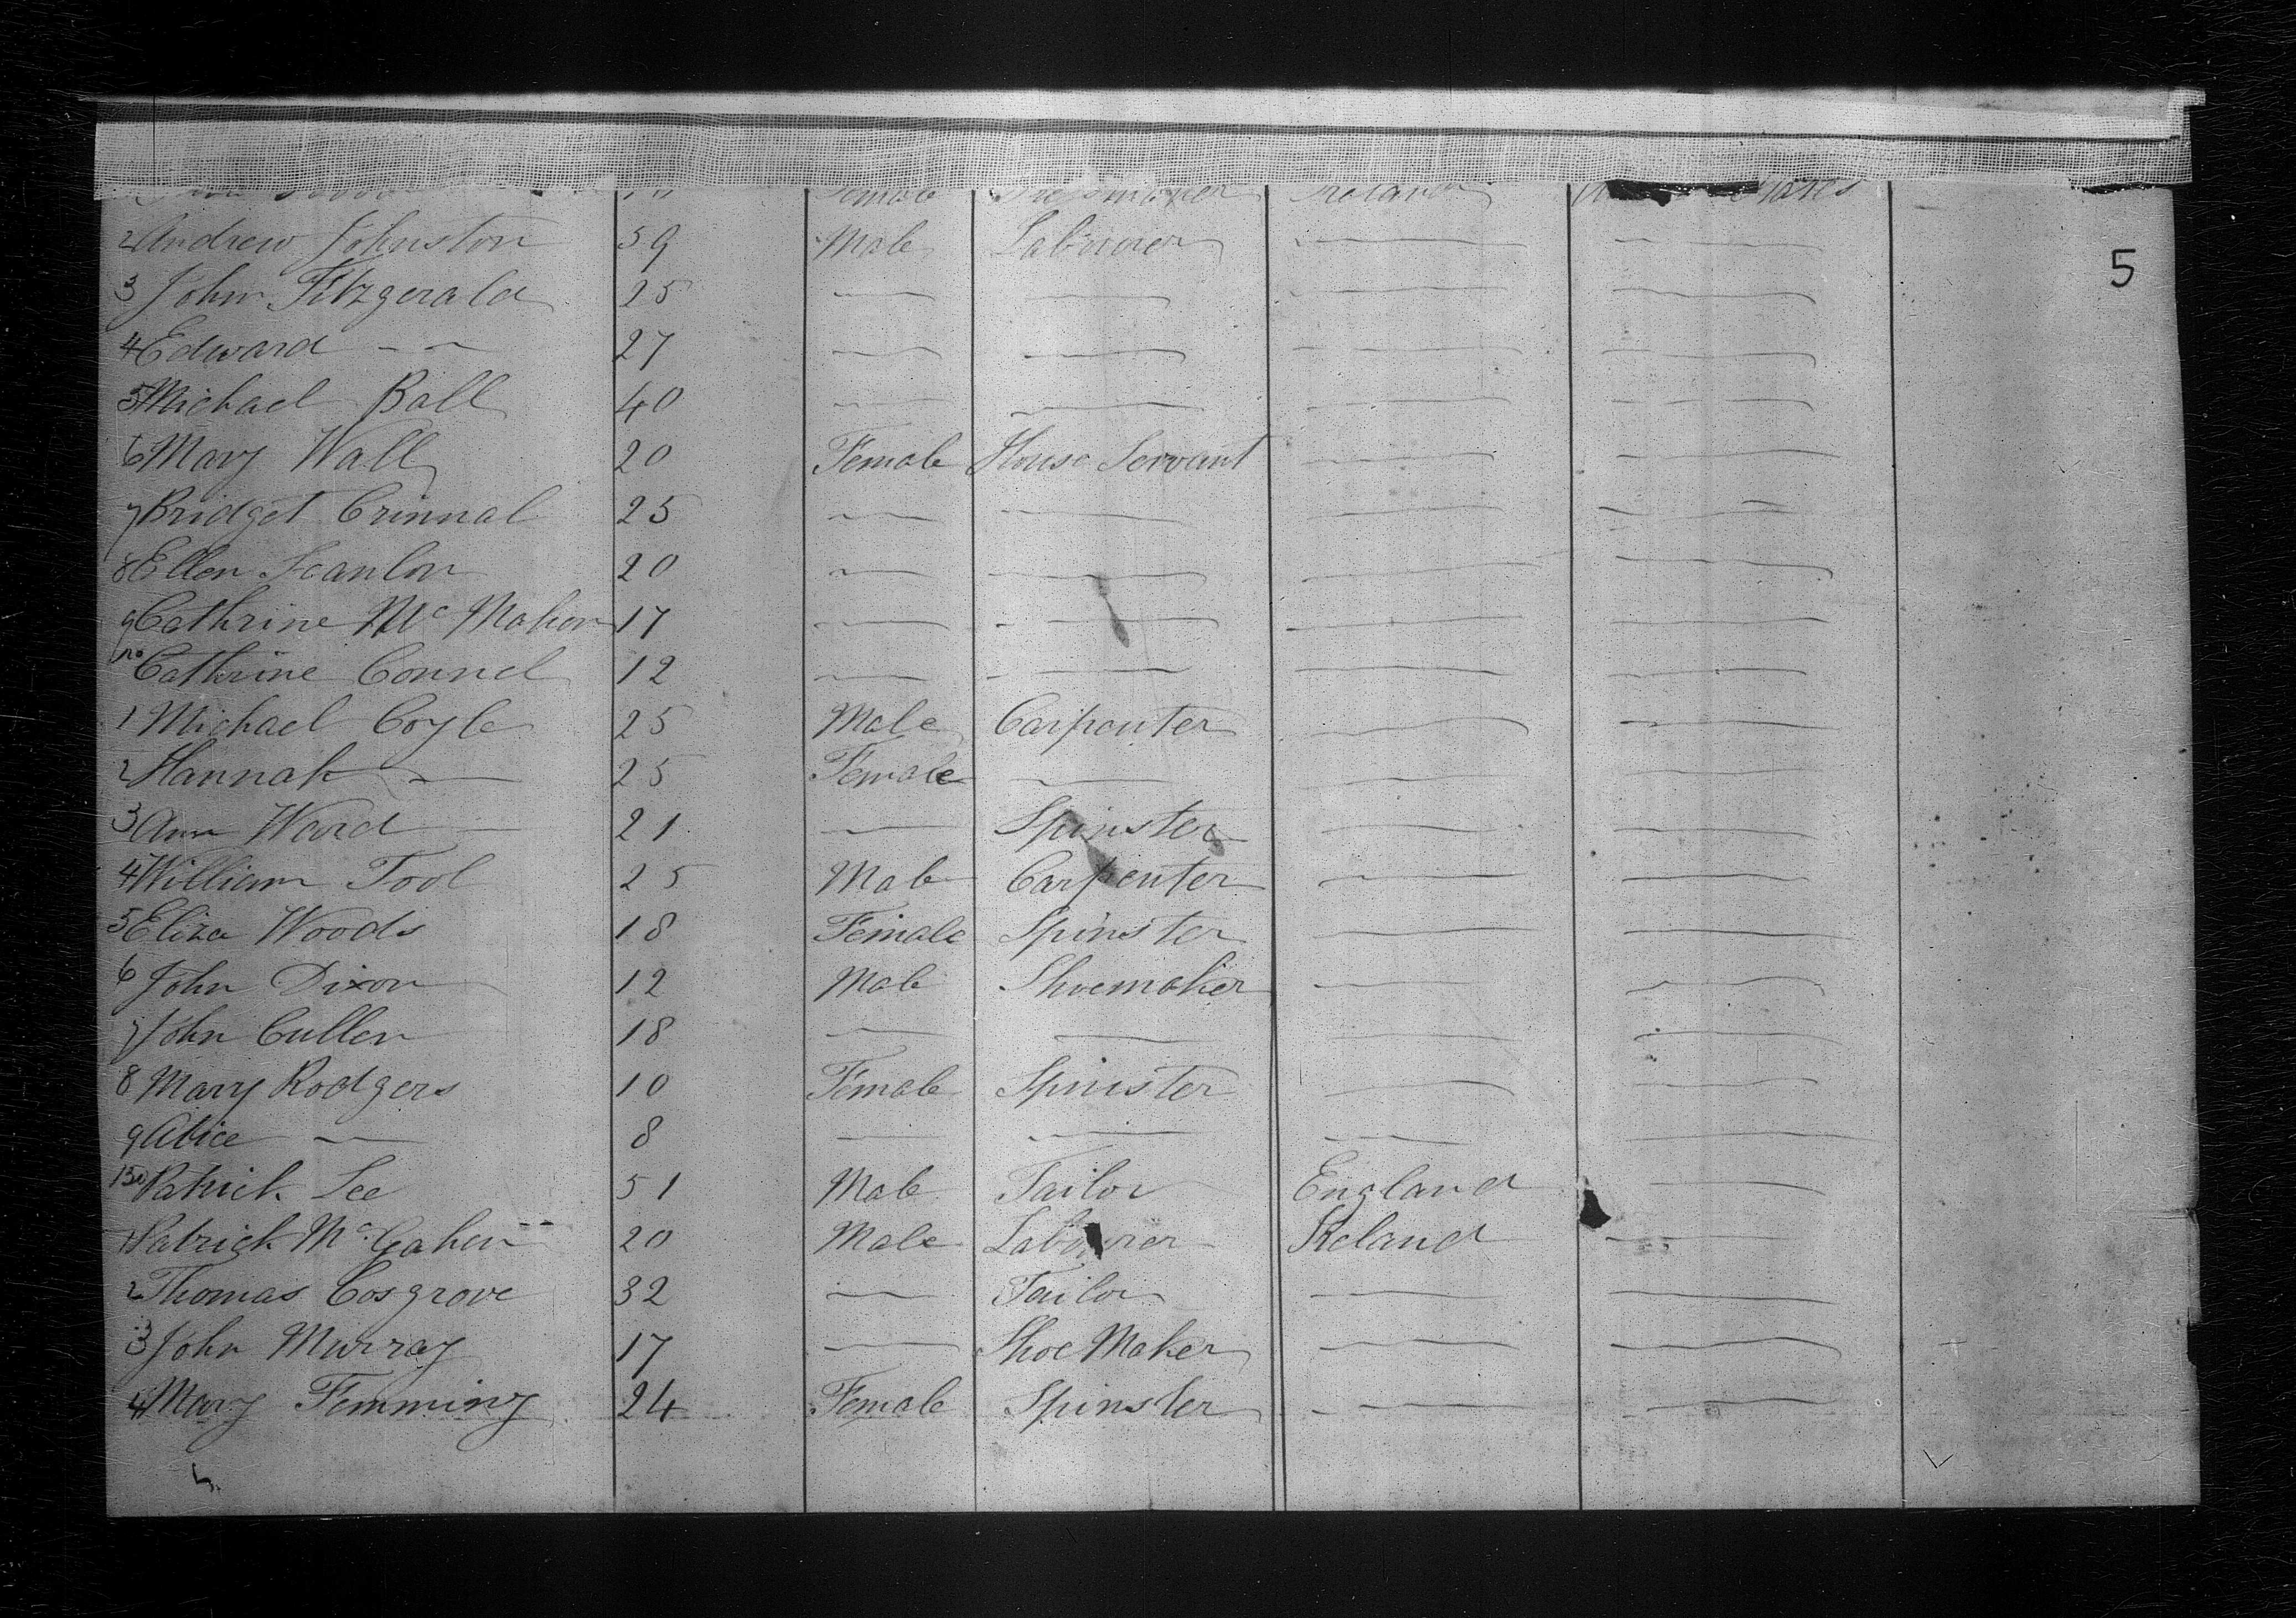 Female Ireland
2 Andrew Johnston 59 Male Labourer — —
5
3 John Fitzgerald 25 — — — —
4 Edward — — 27 — — — —
5 Michael Ball 40 — — — —
6 Mary Wall 20 Female House Servant — —
7 Bridget Crinnal 25 — — — —
8 Ellen Scanlon 20 — — — —
9 Cathrine Mc Mahon 17 — — — —
Cathrine Connel 12 — — — —
1 Michael Coyle 25 Male Carpenter — —
2 Hannah — 25 Female — — —
3 Ann Ward 21 — Spinster — —
4 William Tool 25 Male Carpenter — —
5 Eliza Woods 18 Female Spinster — —
6 John Dixon 12 Male Shoemaker — —
7 John Cullen 18 — — — —
8 Mary Rodgers 10 Female Spinster — —
9 Alice — 8 — — — —
130 Patrick Lee 51 Male Tailor England —
1 Patrick Mc Gahen 20 Male Labourer Ireland —
2 Thomas Cosgrove 32 — Tailor — —
3 John Murray 17 — Shoe Maker — —
4 Mary Femming 24 Female Spinster — —